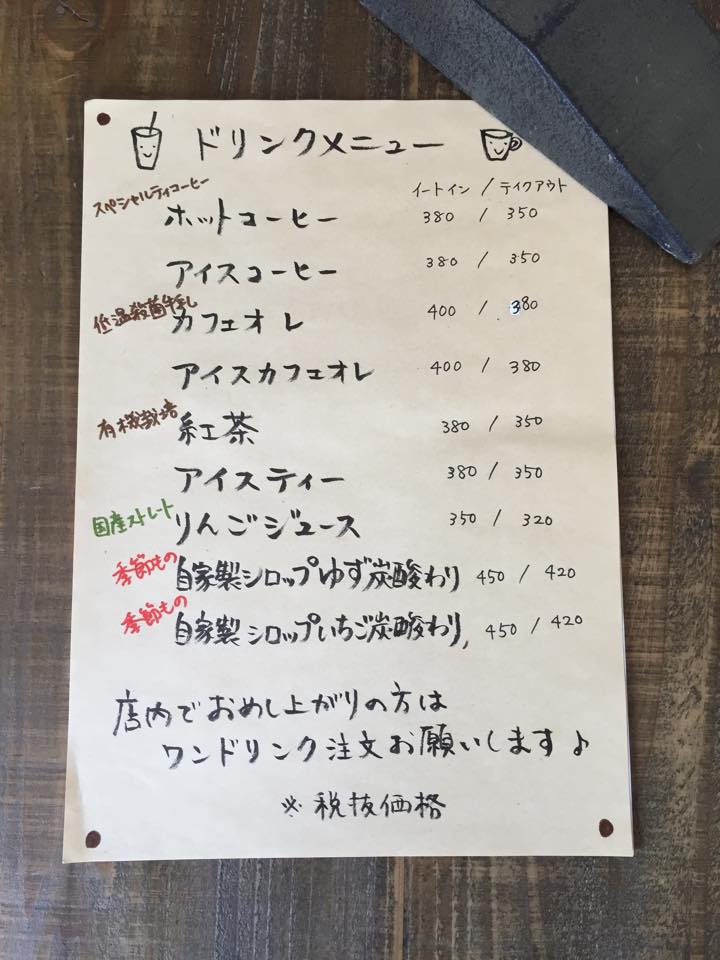 ドリンクメニュー
イートイン / テイクアウト
スペシャルティコーヒー
ホットコーヒー 380 / 350
アイスコーヒー 380 / 350
低温殺菌牛乳
カフェオレ 400 / 380
アイスカフェオレ 400 / 380
有機栽培
紅茶 380 / 350
アイスティー 380 / 350
国産ストレート
りんごジュース 350 / 320
季節もの
自家製シロップゆず炭酸わり 450 / 420
季節もの
自家製シロップいちご炭酸わり 450 / 420
店内でおめし上がりの方は
ワンドリンク注文お願いします♪
※税抜価格